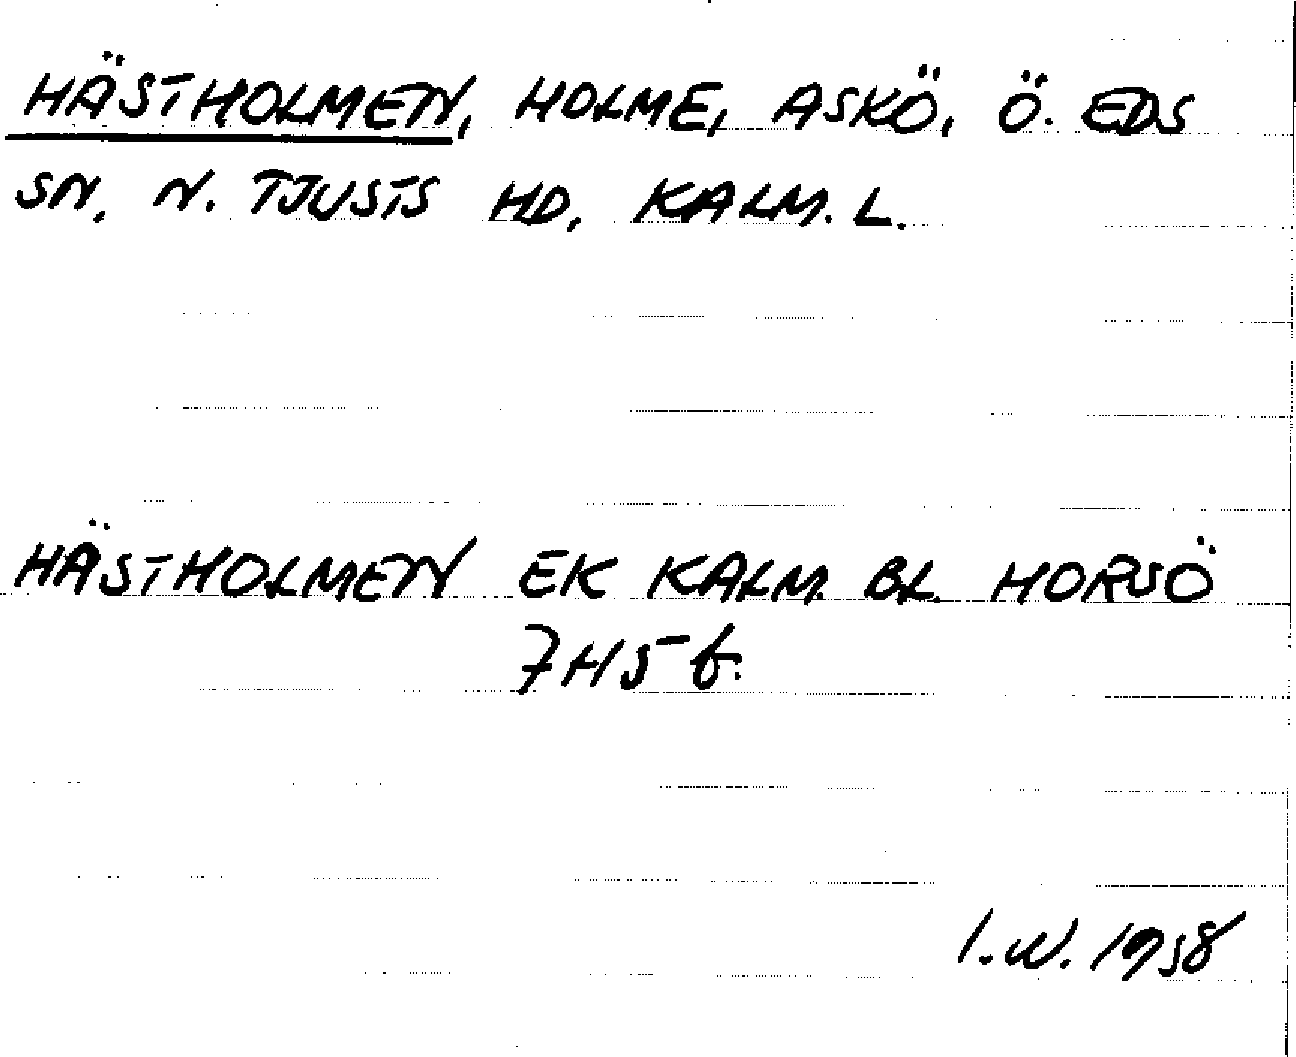 HÄSTHOLMEN, HOLME, ASKÖ, Ö. EDS
SN, N. TJUSTS HD, KALM. L.
HÄSTHOLMEN EK KALM. BL. HORSÖ
7H5f.
I.W. 1958